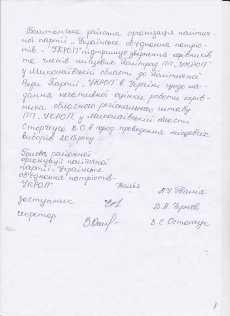 Баштанська районна організація політич-
ної партії „Українське об'єднання патріо-
тів - „УКРОП" підтримує звернення керівників
та членів місцевих осередків ПП „УКРОП"
у Миколаївській області до Політичної
Ради Партії „УКРОП" в Україні щодо на-
дання негативної оцінки роботи керів-
ника обласного регіонального штабу
ПП „УКРОП" у Миколаївській області
В.О. в ході проведення місцевих
виборів 2015 року.
Голова районної
організації політичної
партії „Українське
об'єднання патріотів-
УКРОП"
заступник
секретар